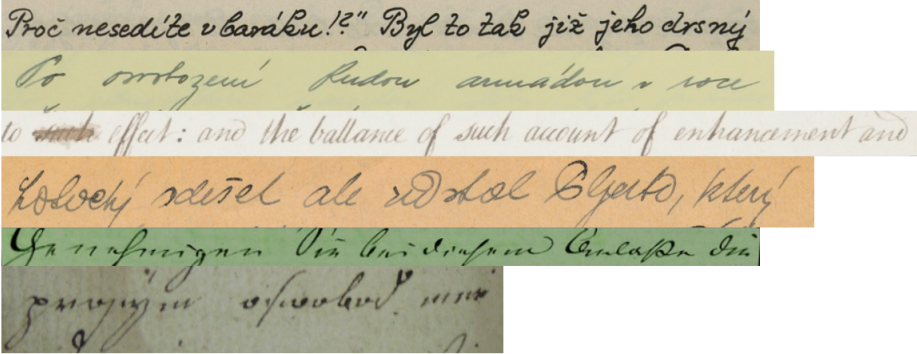 Proč nesedíte v baráku!?" Byl to tak již jeho drsný
Po osvobození Rudou armádou v roce
to such effect: and the ballance of such account of enhancement and
sdešel ale zůstal který
Genehmigen Sie bei diesem Anlaße die